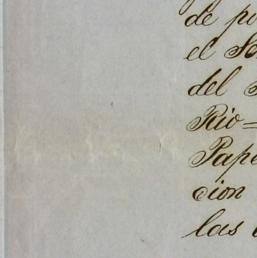 de p
el S
del
Rio=
Pape
cion
las